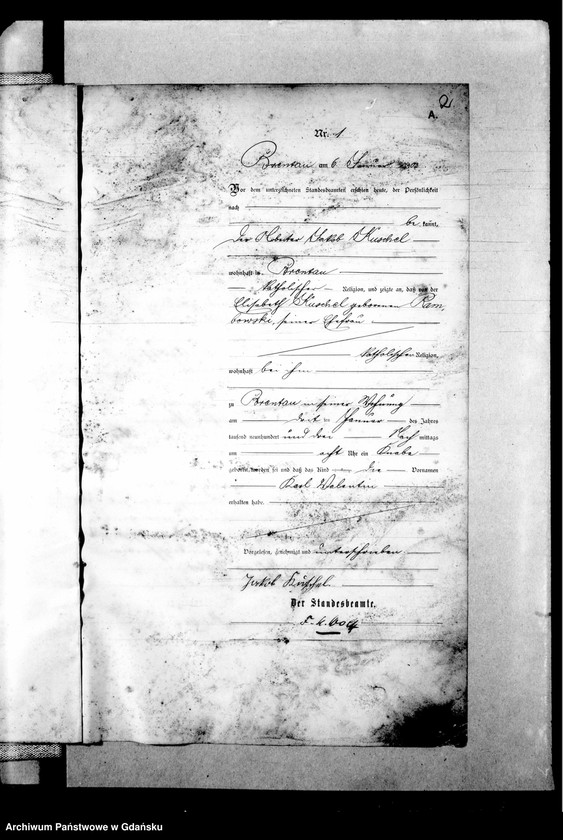 2
A.
Nr. 1
Brentau am 6 Januar
Vor dem unterzeichneten Standesbeamten erschien heute, der Persönlichkeit
nach
be kannt,
der Arbeiter Jakob Kuschel
wohnhaft in Brentau
katholischer Religion, und zeigte an, daß von der
Elisabeth Kuschel geborenen Ram,
bowski, seiner Ehefrau
katholischer Religion,
wohnhaft bei ihm
zu Brentau in seiner Wohnung
am Januar des Jahres
tausend neunhundert und drei Nach mittags
um acht Uhr ein Knabe
geboren worden sei und daß das Kind die Vornamen
Karl Valentin
erhalten habe.
Vorgelesen, genehmigt und unterschrieben
Jakob Kuschel
Der Standesbeamte.
Archiwum Państwowe w Gdańsku